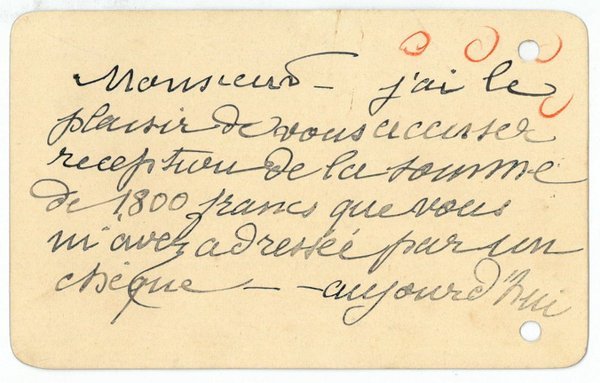 Monsieur – j'ai le
plaisir de vous accuser
reception de la somme
de 1,800 francs que vous
m'avez adressée par un
chèque – – aujourd'hui